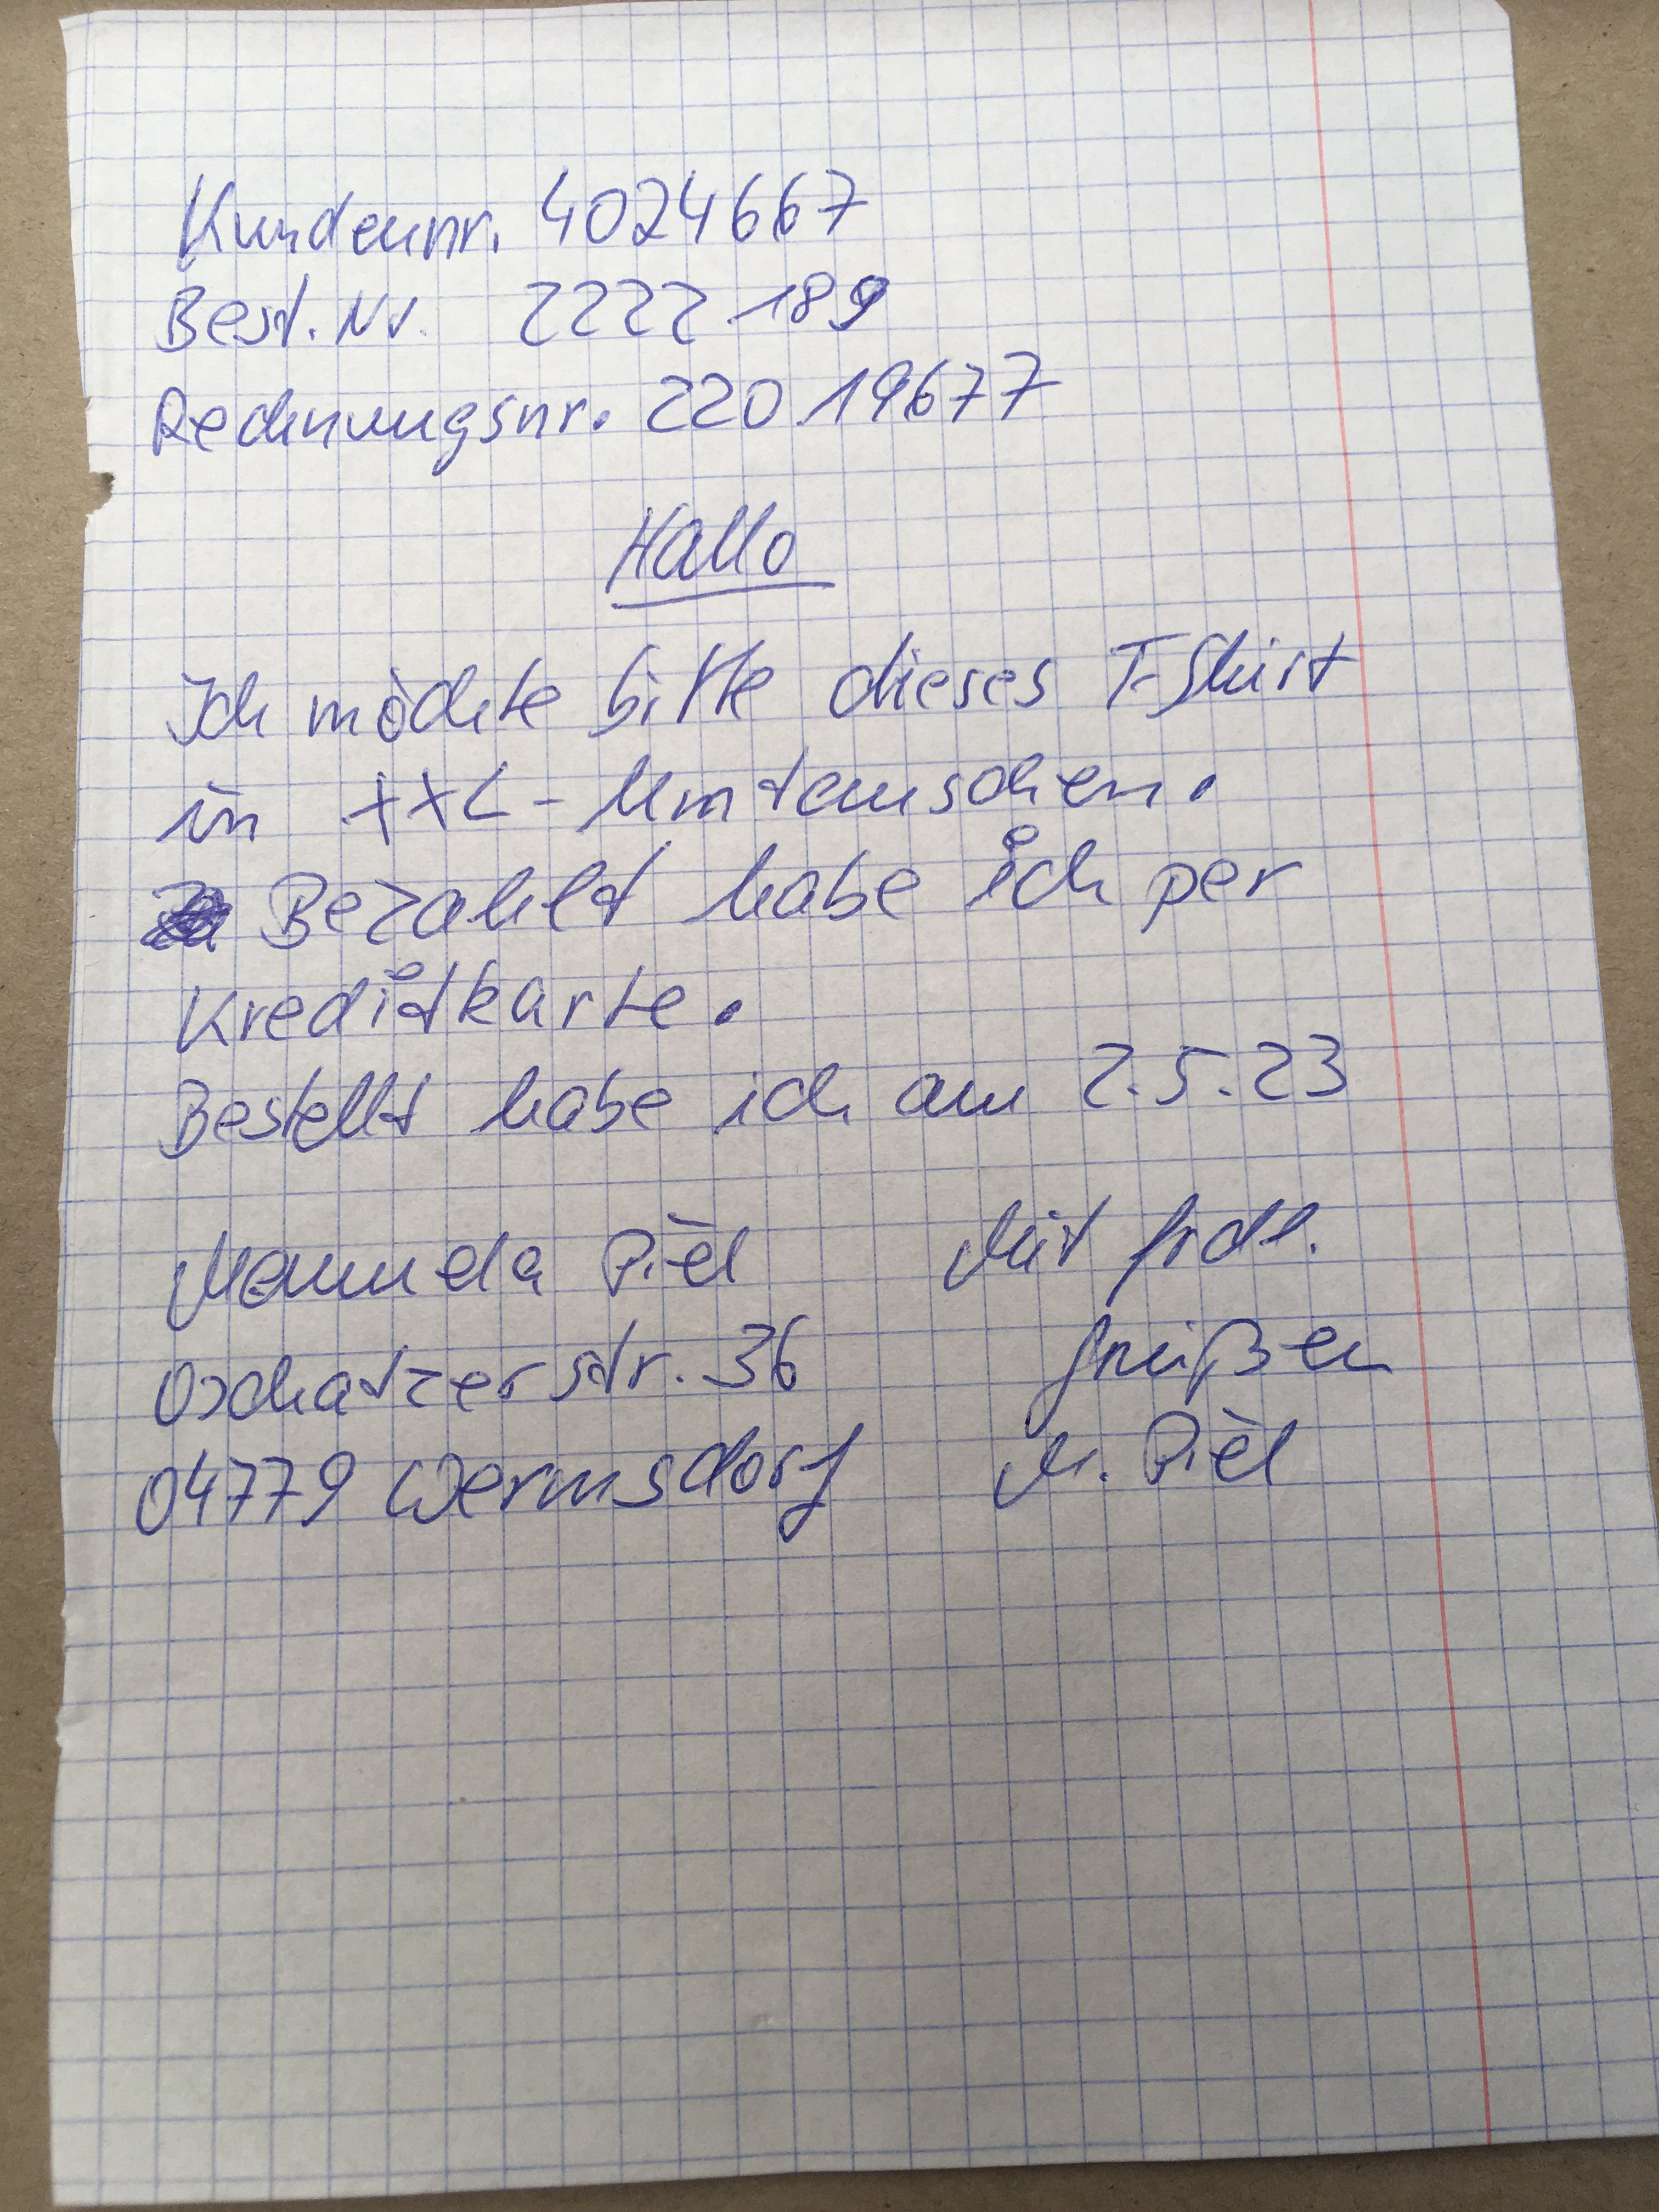 Kundennr. 4024667
Best. Nr. 2222189
Rechnungsnr. 22019677
Hallo
Ich möchte bitte dieses T-Shirt
in XXL - Umtauschen.
Bezahlt habe ich per
Kreditkarte.
Bestellt habe ich am 2.5.23
Manuela Piël
Oschatzerstr. 36
04779 Wermsdorf
Mit frdl.
Grüßen
M. Piël